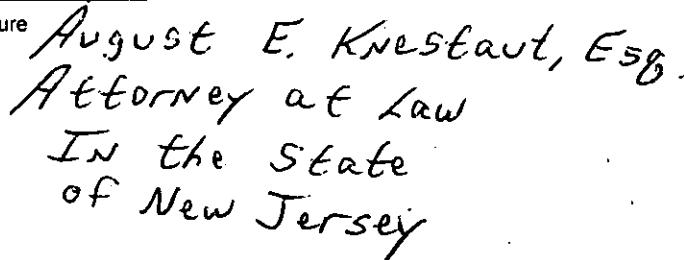 ure August E. Knestaut, Esq.
Attorney at Law
In the State
of New Jersey